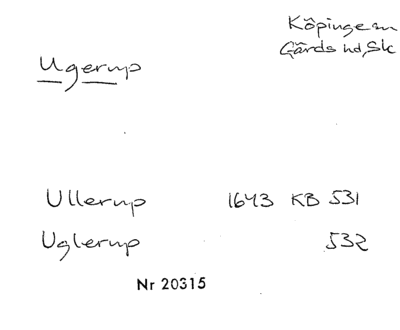 Köpinge sn
Gärds hd, Sk
Ugerup
Ullerup 1643 KB 531
Uglerup 532
Nr 20315